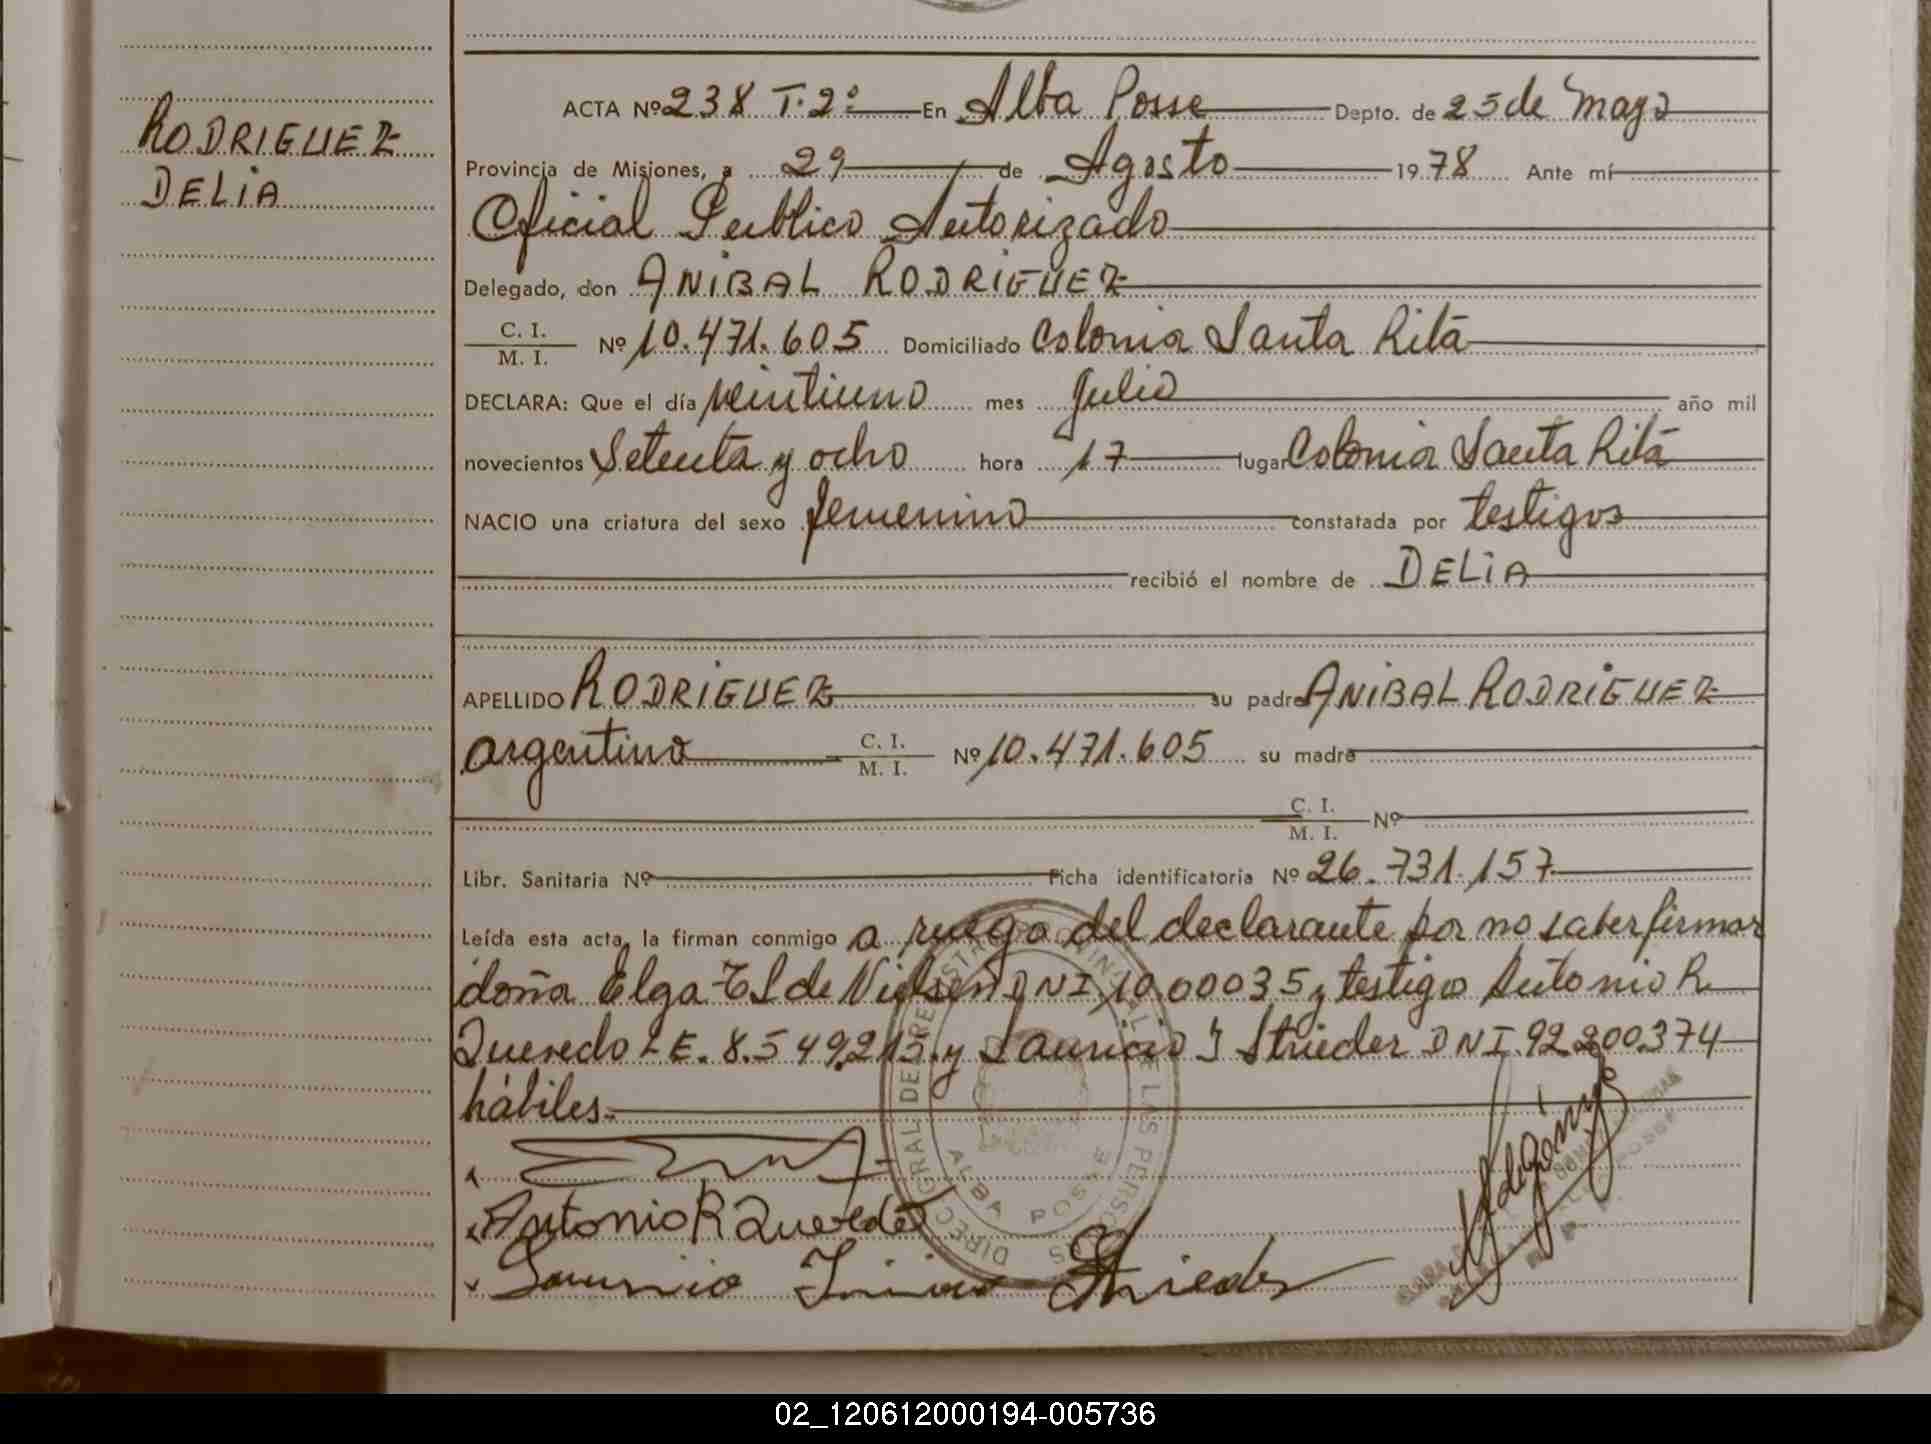 RODRIGUEZ
DELiA
ACTA Nº 238 T. 2º En Alba Posse Depto. de 25 de Mayo
Provincia de Misiones, a 29 de Agosto 1978 Ante mí
Oficial Publico Autorizado
Delegado, don ANiBAL RODRiGUEZ
C. I.
M. I. Nº 10.471.605 Domiciliado Colonia Santa Rita
DECLARA: Que el día veintiuno mes Julio año mil
novecientos Setenta y ocho hora 17 lugar Colonia Santa Rita
NACIO una criatura del sexo femenino constatada por testigos
recibió el nombre de DELiA
APELLIDO RODRiGUEZ su padre ANiBAL RODRiGUEZ
argentino C. I.
M. I. Nº 10.471.605 su madre
C. I.
M. I. Nº
Libr. Sanitaria Nº Ficha identificatoria Nº 26.731.157
Leída esta acta, la firman conmigo a ruego del declarante por no saber firmar
doña Elga de DNI y testigos Antonio R.
Quevedo L E. 8.549.215 y Lauricio J Strieder DNI. 92.200.374
hábiles.
Antonio R Quevedo
Strieder
DIRECC GRAL DE REGISTRO PROVINCIAL DE LAS PERSONAS
ALBA POSSE
02_120612000194-005736